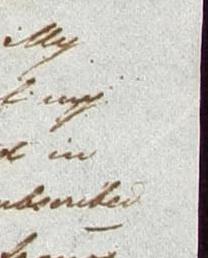 My
my
d in
ubscribed